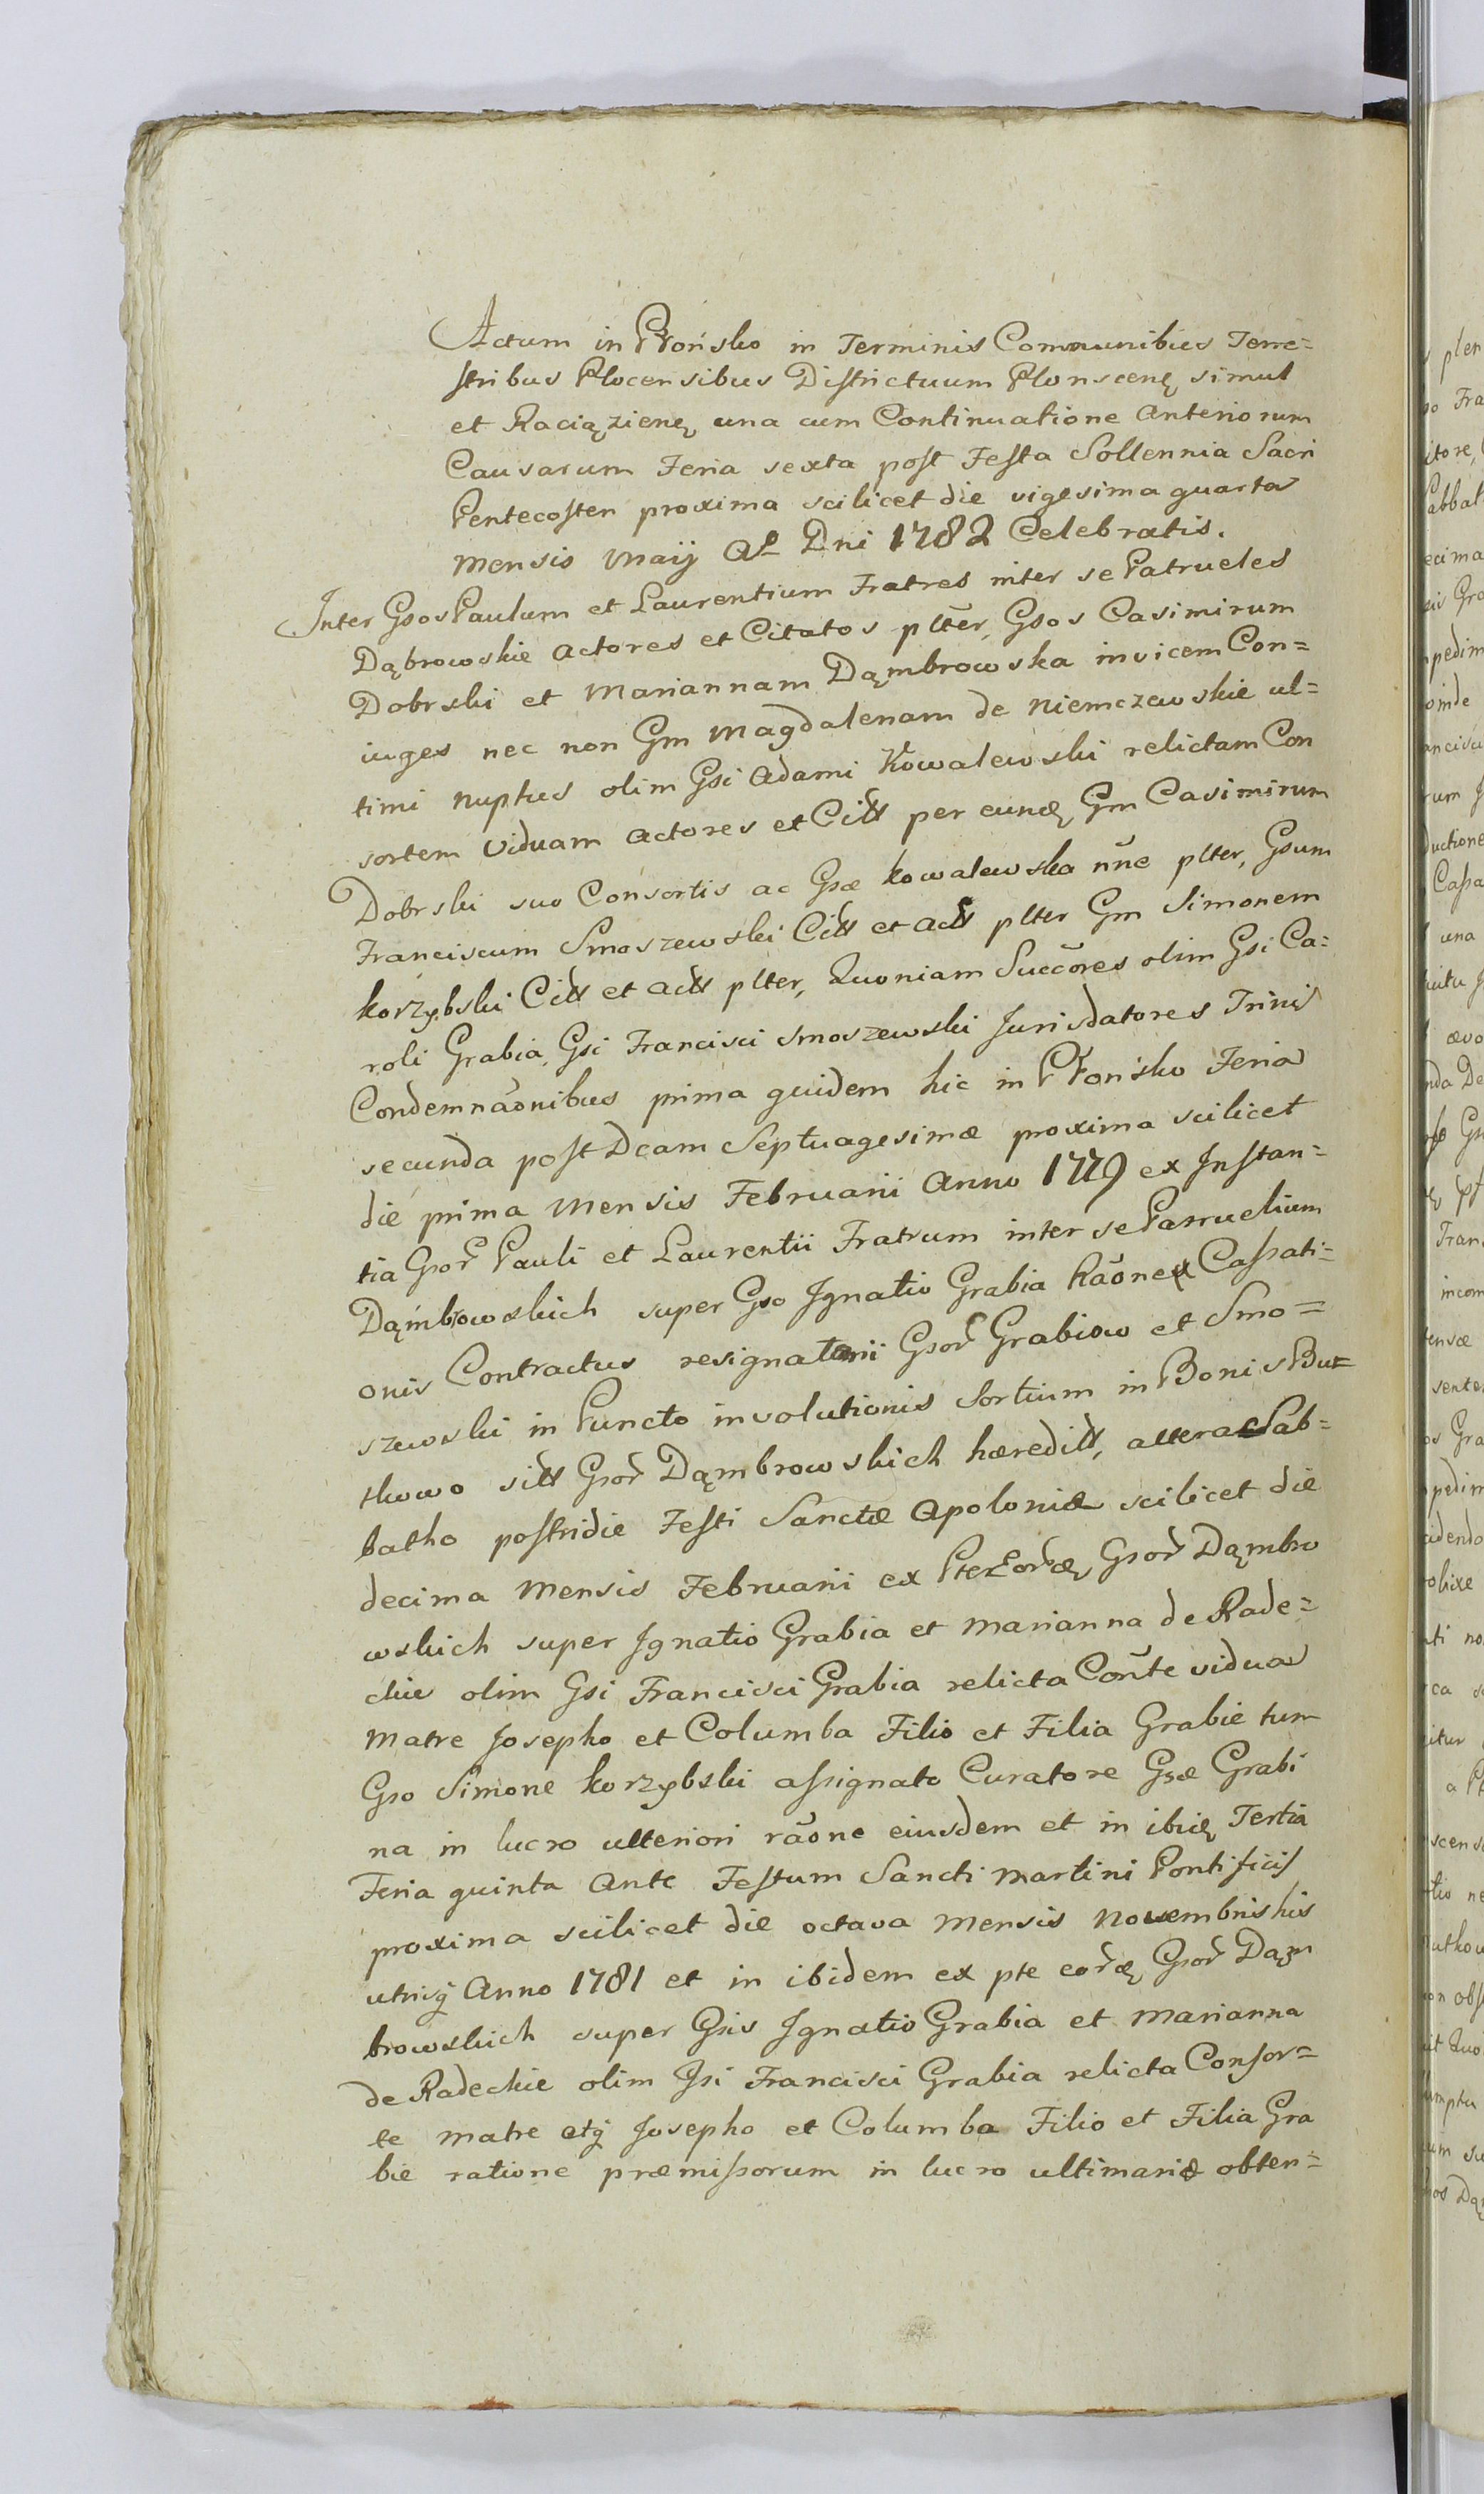 Actum in Płońsko in Terminis Communibus Terre=
stribus Plocensibus Districtuum Plonscenę simul
et Raciązienę una cum Continuatione Anteriorum
Causarum Feria sexta post Festa Sollennia Sacri
Pentecosten proxima scilicet die vigesima quarta
Mensis Maij Ao Dni 1782 Celebratis.
Inter Gsos Paulum et Laurentium Fratres inter se Patrueles
Dąbrowskie Actores et Citatos plter, Gsos Casimirum
Dobrski et Mariannam Dąmbrowska invicem Con=
iuges nec non Gm Magdalenam de Niemczewskie ul=
timi nuptus olim Gsi Adami Kowalewski relictam Con
sortem Viduam Actores et Citt per eundę Gm Casimirum
Dobrski suo Consortis ac Gsæ Kowalewska nñe plter, Gsum
Franciscum Smoszewski Citt et Actt plter Gm Simonem
Korzybski Citt et Actt plter, Quoniam Succõres olim Gsi Ca=
roli Grabia, Gsi Francisci Smoszewski Jurisdatores Trinis
Condemnãonibus prima quidem hic in Płońsko Feria
secunda post Dcam Septuagesimæ proxima scilicet
die prima Mensis Februarii Anno 1779 ex Instan=
tia Gsor Pauli et Laurentii Fratrum inter se Parruelium
Dąmbrowskich super Gso Ignatio Grabia Rãone Cassati=
onis Contractus resignatorii Gsor Grabiow et Smo=
szewski in Puncto involutionis Sortium in Bonis But=
tkowo sitt Gsor Dąmbrowskich hæreditt, altera Sab=
batho postridie Festi Sanctæ Apoloniæ scilicet die
decima Mensis Februarii ex Pte Eordę Gsor Dąmbro
wskich super Ignatio Grabia et Marianna de Rade=
ckie olim Gsi Francisci Grabia relicta Conte vidua
Matre Josepho et Columba Filio et Filia Grabie tum
Gso Simone Korzybski assignato Curatore Gsæ Grabi
na in lucro ulteriori rãone eiusdem et in ibidę Tertia
Feria quinta Ante Festum Sancti Martini Pontificis
proxima scilicet die octava Mensis Novembris his
utrisq Anno 1781 et in ibidem ex pte eordę Gsor Dąm
browskich super Gsis Ignatio Grabia et Marianna
de Radeckie olim Gsi Francisci Grabia relicta Consor=
te Matre atq Josepho et Columba Filio et Filia Gra
bie ratione præmissorum in lucro ultimario obten=